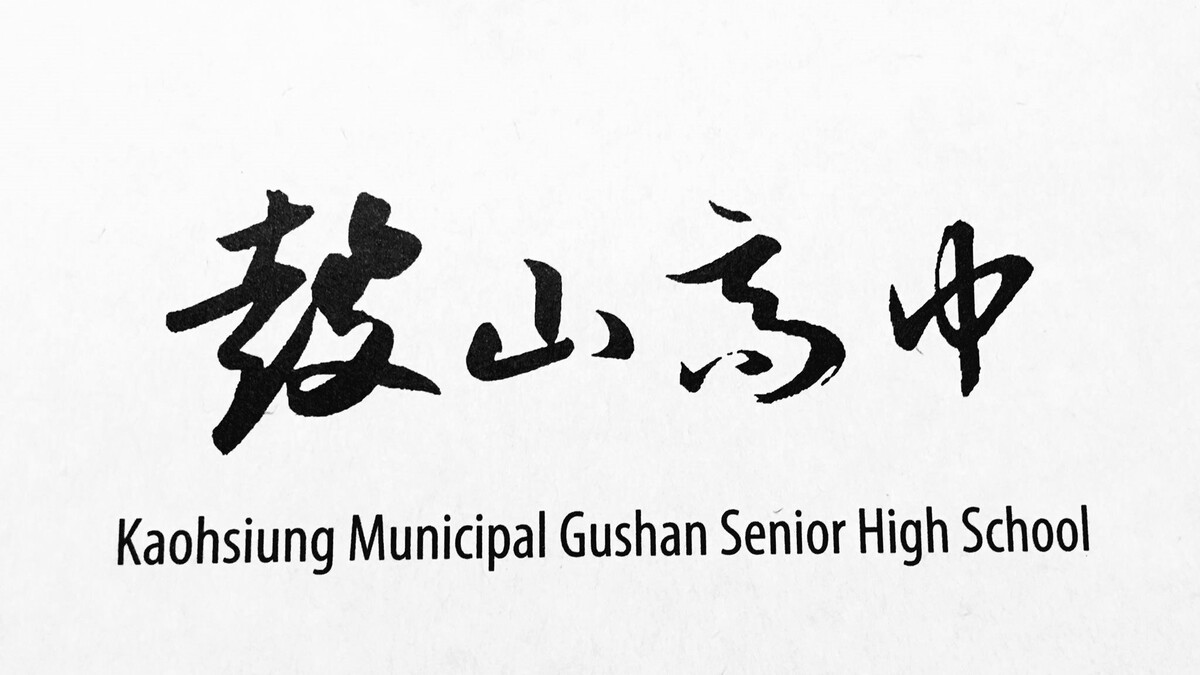 鼓山高中
Kaohsiung Municipal Gushan Senior High School